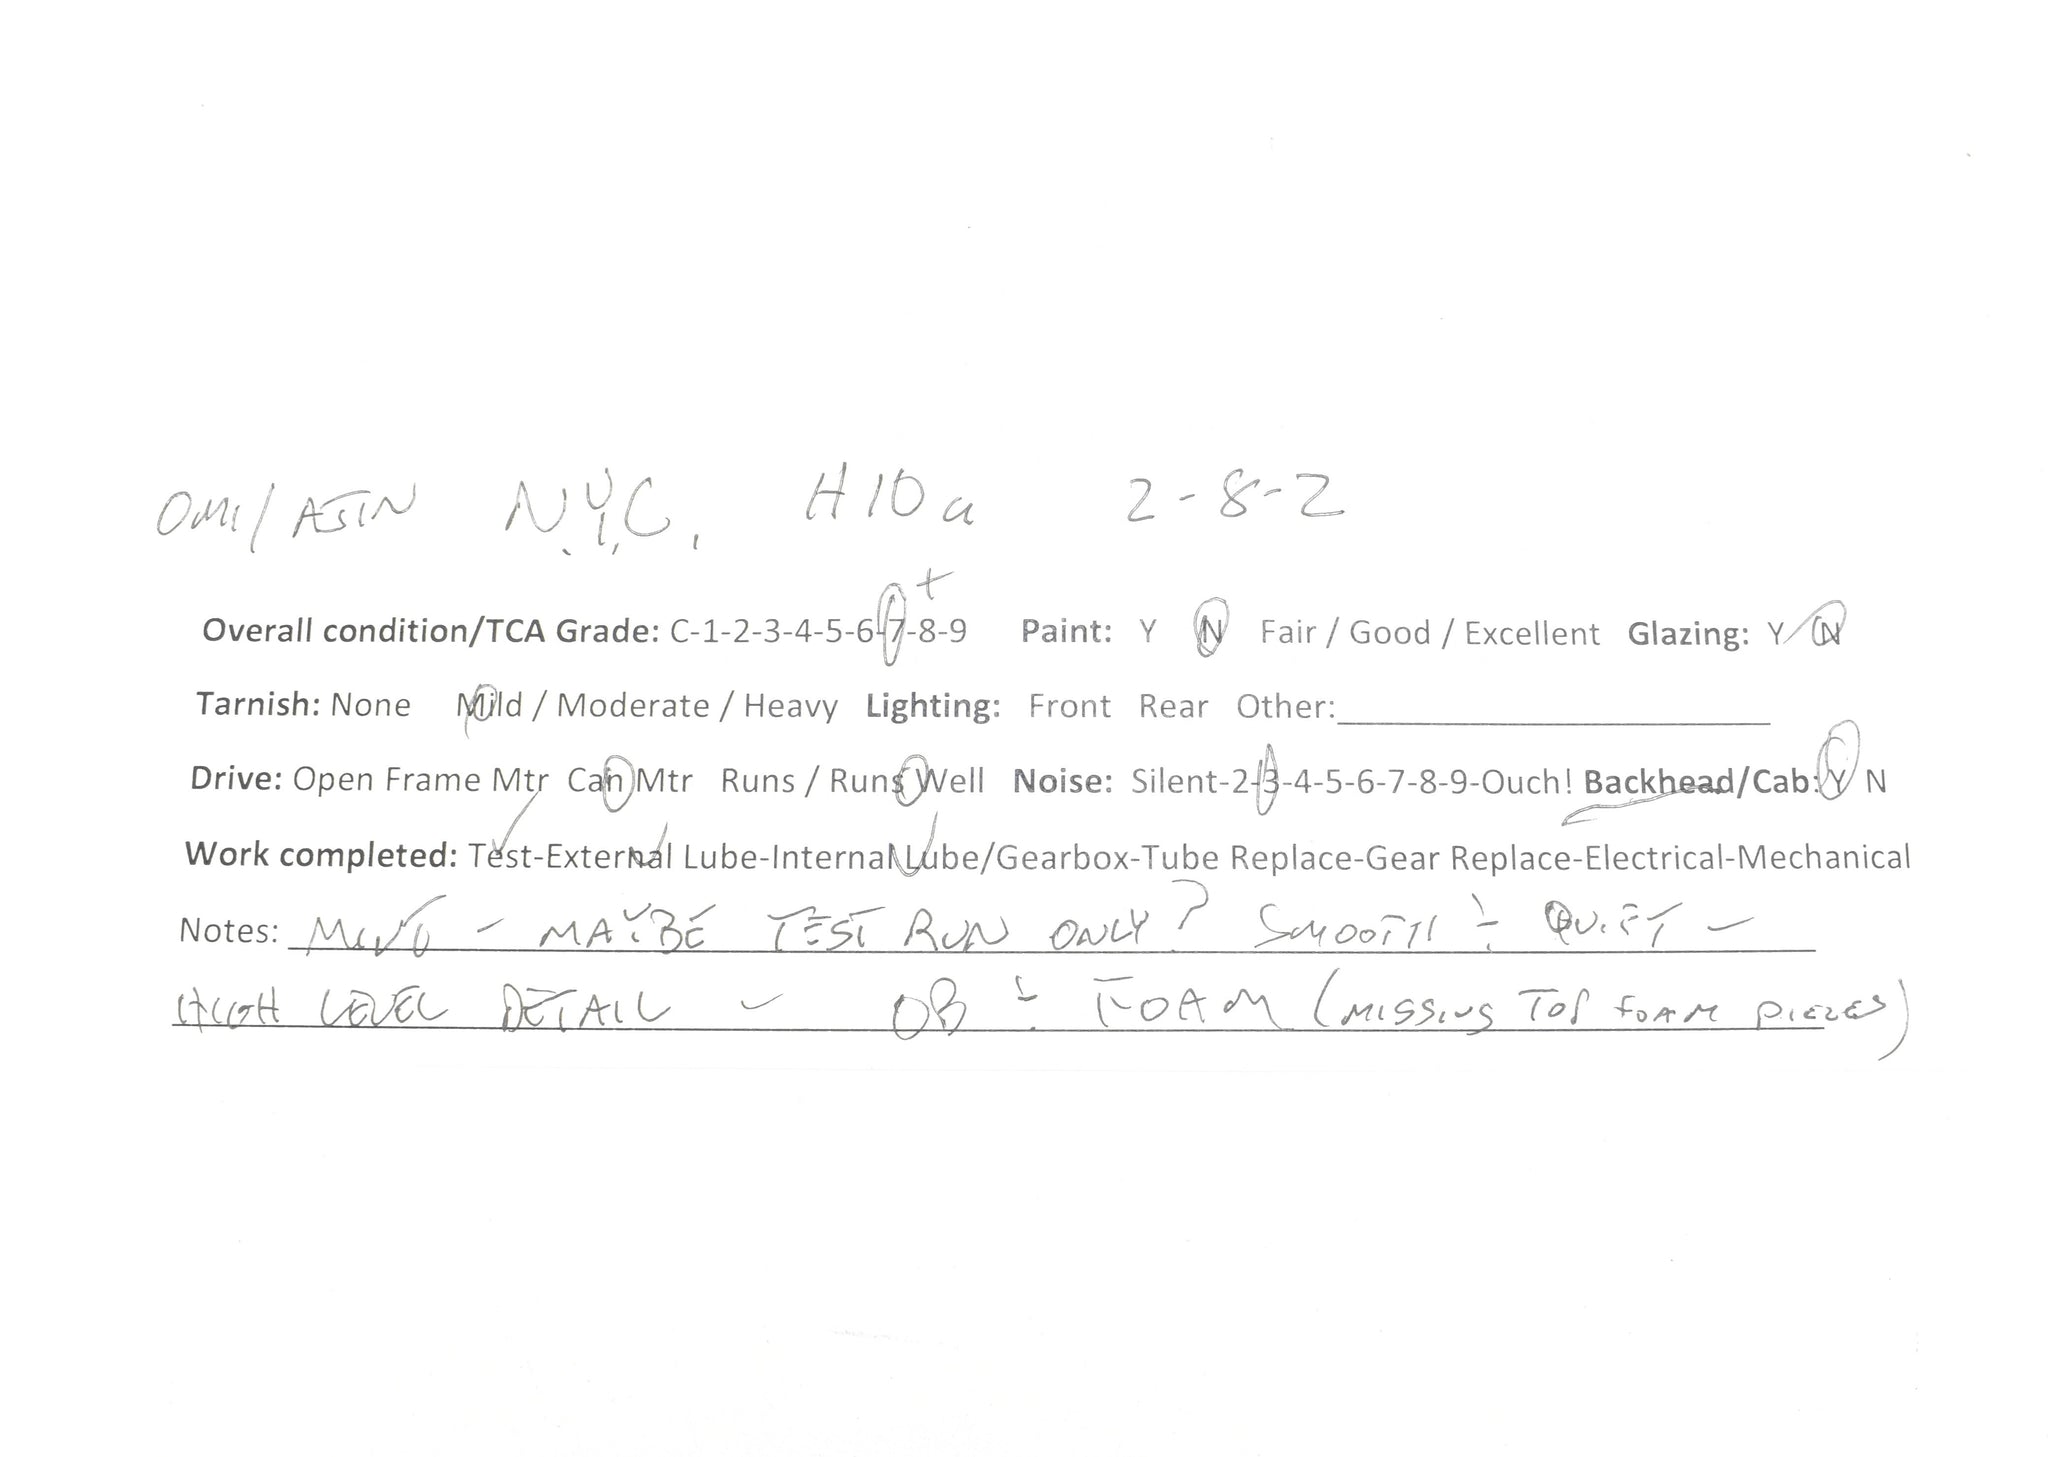 OMI/AJIN N.Y.C. H10a 2-8-2
+
Overall condition/TCA Grade: C-1-2-3-4-5-6-7-8-9 Paint: Y N Fair / Good / Excellent Glazing: Y N
Tarnish: None Mild / Moderate / Heavy Lighting: Front Rear Other:
Drive: Open Frame Mtr Can Mtr Runs / Runs Well Noise: Silent-2-3-4-5-6-7-8-9-Ouch! Backhead/Cab: Y N
Work completed: Test-External Lube-Internal Lube/Gearbox-Tube Replace-Gear Replace-Electrical-Mechanical
Notes: - MAYBE TEST RUN ONLY? SMOOTH & QUIET -
HIGH LEVEL DETAIL - OB & FOAM (MISSING TOP FOAM PIECES)